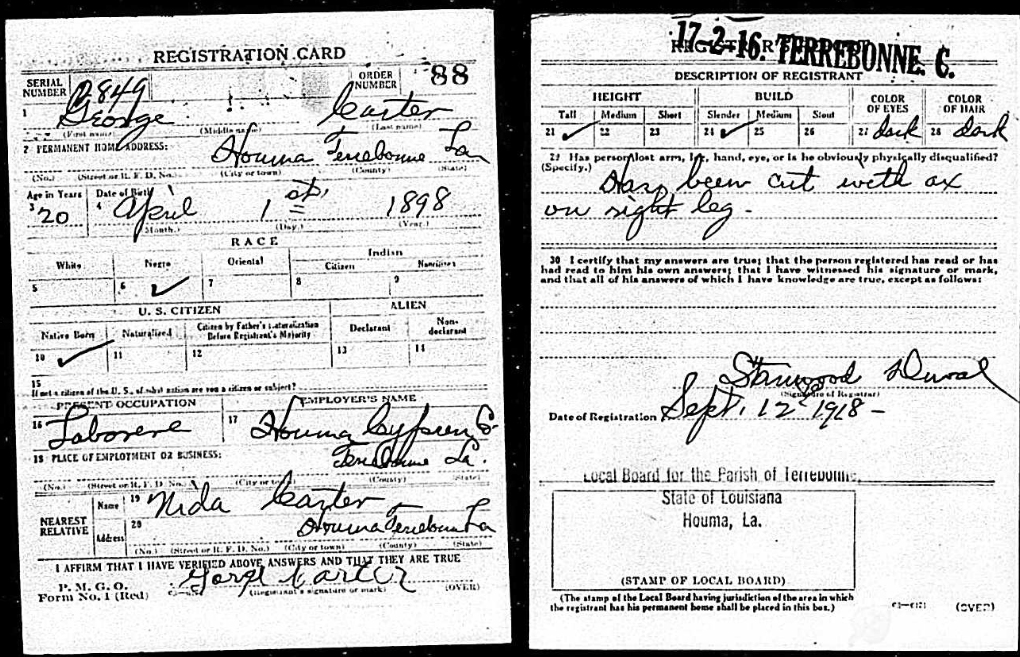 REGISTRATION CARD
SERIAL NUMBER 2849 ORDER NUMBER 88
1 George Carter
(First name) (Middle name) (Last name)
2 PERMANENT HOME ADDRESS: Houma Terrebonne La
(No.) (Street or R. F. D. No.) (City or town) (County) (State)
Age in Years Date of Birth
3 20 4 April 1st 1898
(Month.) (Day.) (Year.)
RACE
White Negro Oriental Indian
Citizen Noncitizen
5 6 ✓ 7 8 9
U. S. CITIZEN ALIEN
Native Born Naturalized Citizen by Father's Naturalization Before Registrant's Majority Declarant Non-declarant
10 ✓ 11 12 13 14
15
If not a citizen of the U. S., of what nation are you a citizen or subject?
PRESENT OCCUPATION EMPLOYER'S NAME
16 Laborer 17 Houma Cypress Co
18 PLACE OF EMPLOYMENT OR BUSINESS: Terrebonne La.
(No.) (Street or R. F. D. No.) (City or town) (County) (State)
NEAREST RELATIVE Name 19 Nida Carter
Address 20 Houma Terrebonne La
(No.) (Street or R. F. D. No.) (City or town) (County) (State)
I AFFIRM THAT I HAVE VERIFIED ABOVE ANSWERS AND THAT THEY ARE TRUE
P. M. G. O.
Form No. 1 (Red) George Carter
(Registrant's signature or mark) (OVER)
17-2-16. TERREBONNE. C.
DESCRIPTION OF REGISTRANT
HEIGHT BUILD COLOR OF EYES COLOR OF HAIR
Tall Medium Short Slender Medium Stout
21 ✓ 22 23 24 ✓ 25 26 27 dark 28 dark
29 Has person lost arm, leg, hand, eye, or is he obviously physically disqualified?
(Specify.) Has been cut with ax
on right leg-
30 I certify that my answers are true; that the person registered has read or has
had read to him his own answers; that I have witnessed his signature or mark,
and that all of his answers of which I have knowledge are true, except as follows:
Stanwood Duval
(Signature of Registrar)
Date of Registration Sept. 12 1918-
Local Board for the Parish of Terrebonne,
State of Louisiana
Houma, La.
(STAMP OF LOCAL BOARD)
(The stamp of the Local Board having jurisdiction of the area in which
the registrant has his permanent home shall be placed in this box.)
(OVER)